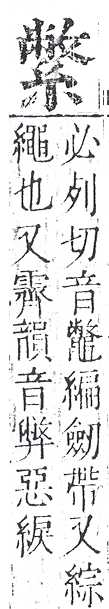 䌘
必列切音鼈編劒帶又綜
繩也又霽韻音弊惡綟